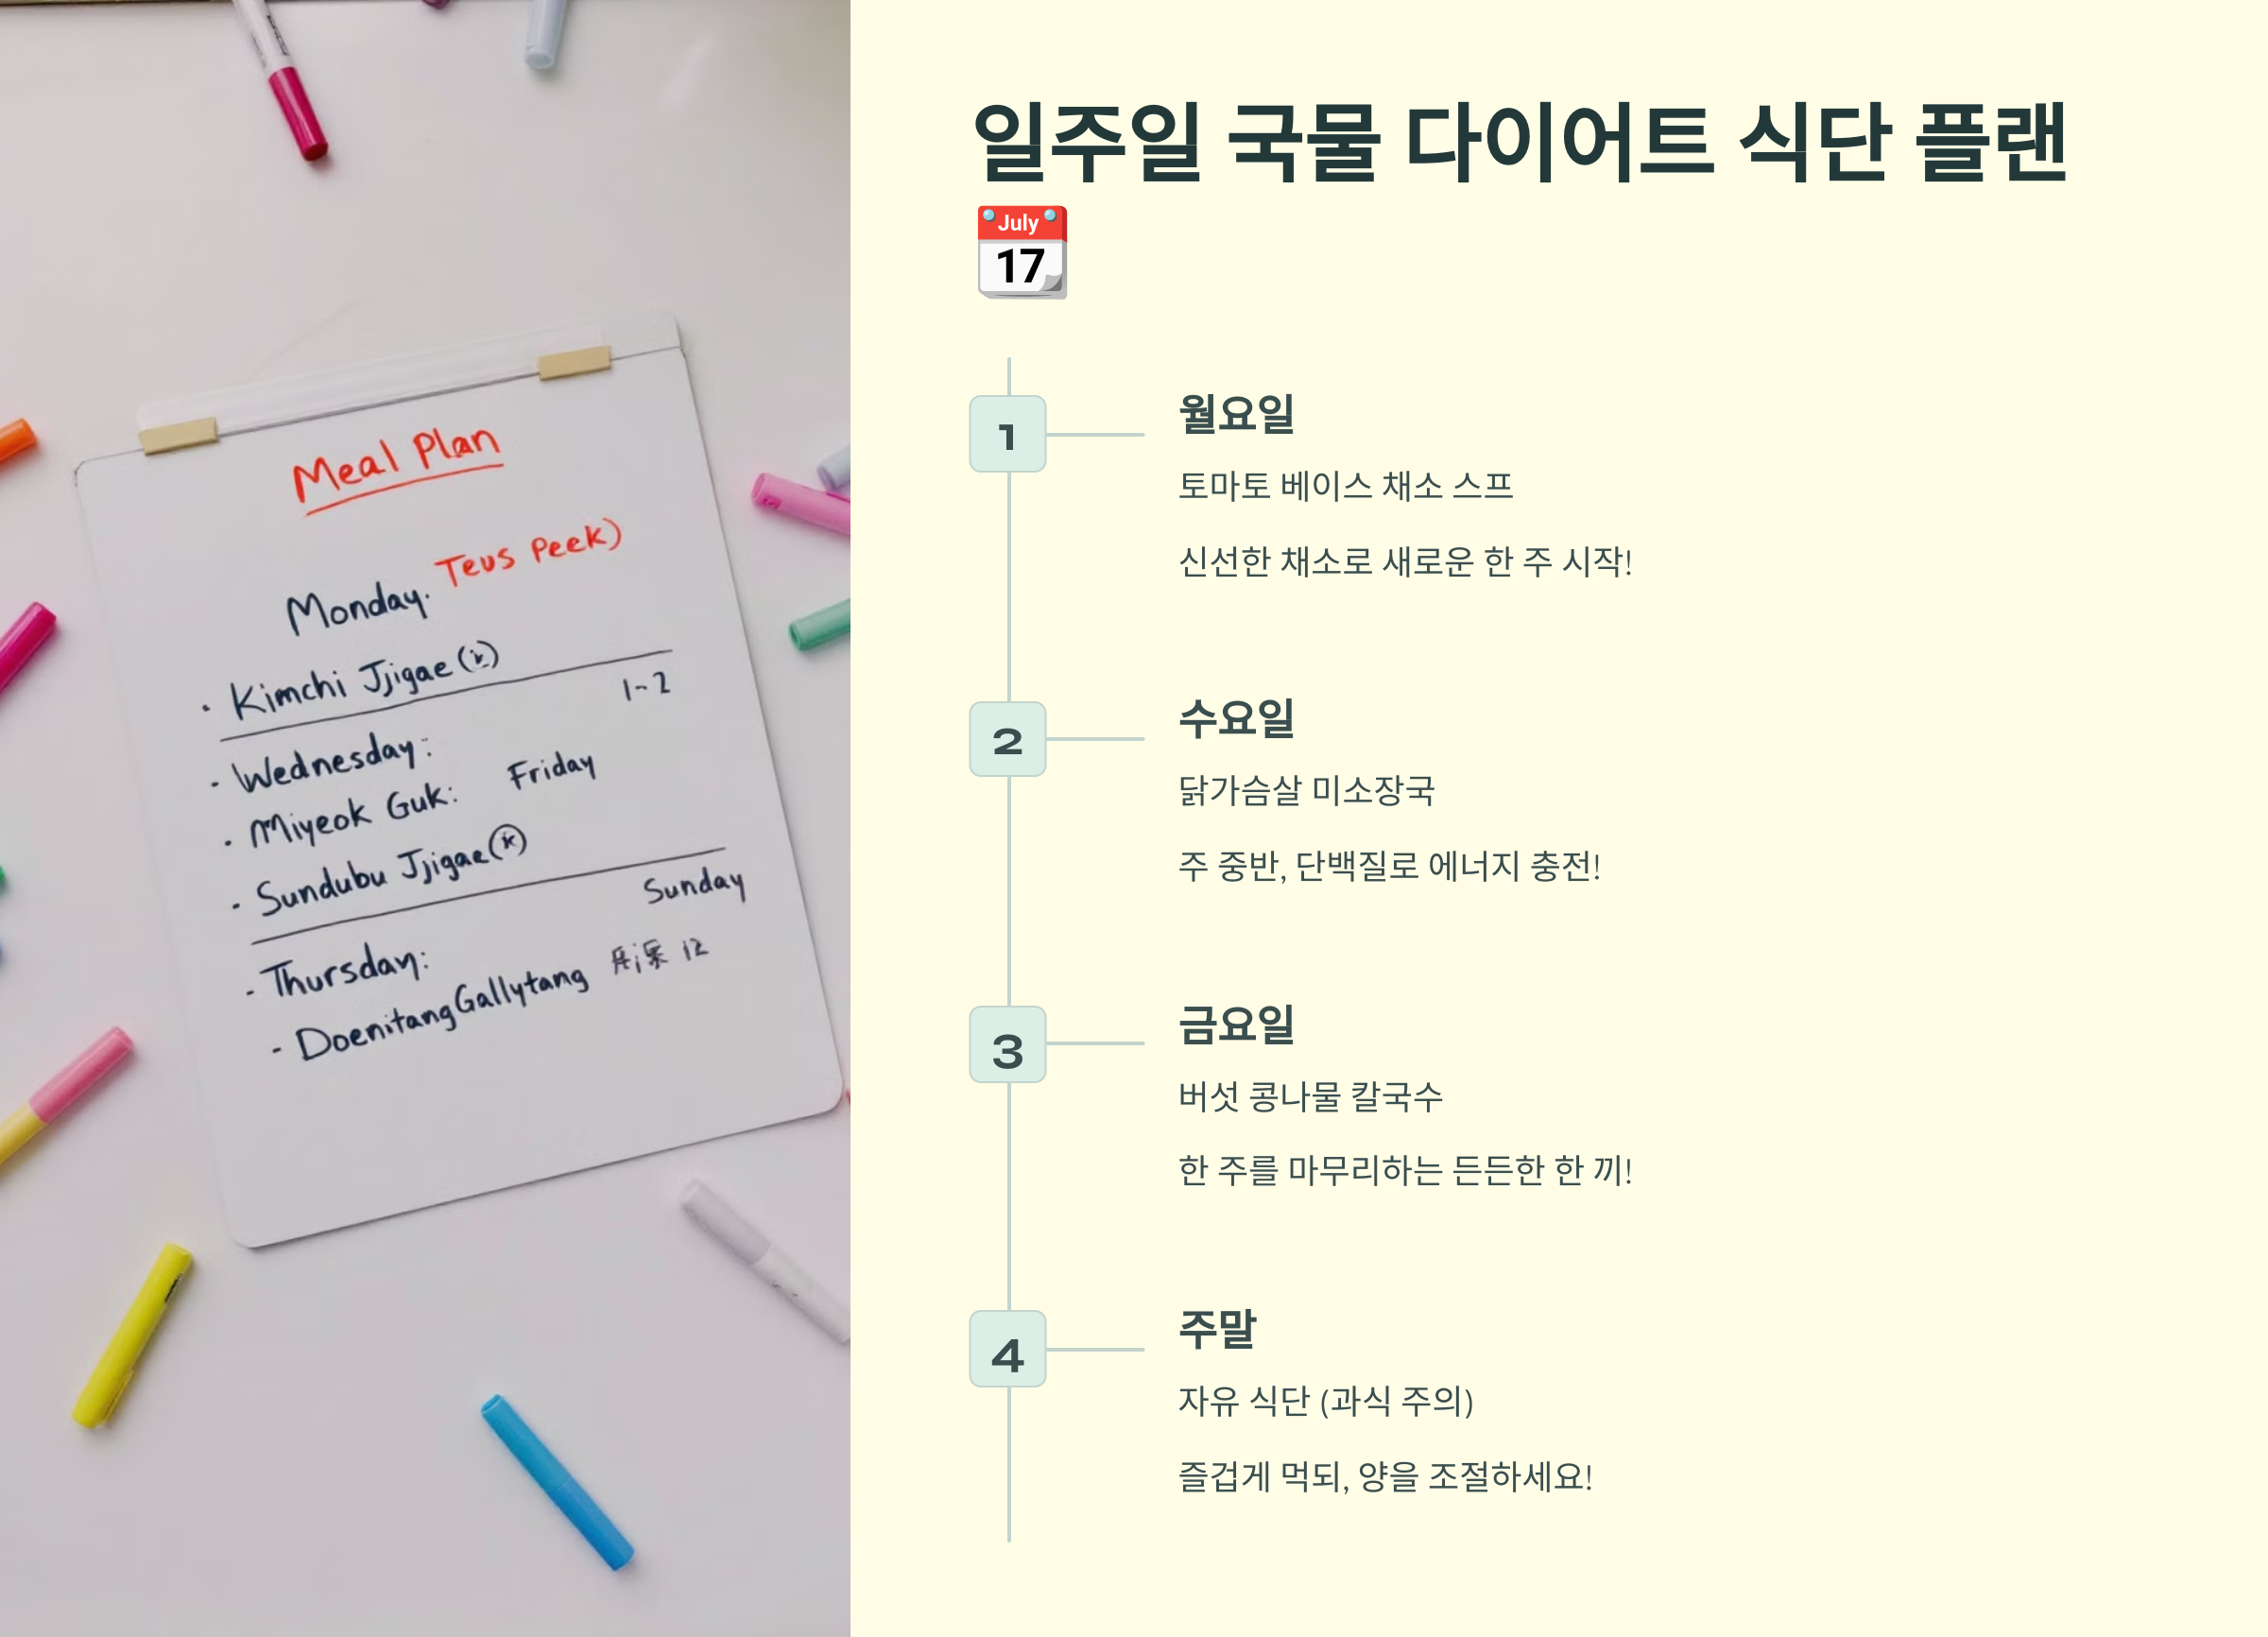 Meal Plan
Monday. Teus Peek)
· Kimchi Jjigae
1-2
- Wednesday:
· Miyeok Guk: Friday
- Sundubu Jjigae
Sunday
- Thursday:
- DoenitangGallytang
일주일 국물 다이어트 식단 플랜
July
17
1
월요일
토마토 베이스 채소 스프
신선한 채소로 새로운 한 주 시작!
2
수요일
닭가슴살 미소장국
주 중반, 단백질로 에너지 충전!
3
금요일
버섯 콩나물 칼국수
한 주를 마무리하는 든든한 한 끼!
4
주말
자유 식단 (과식 주의)
즐겁게 먹되, 양을 조절하세요!